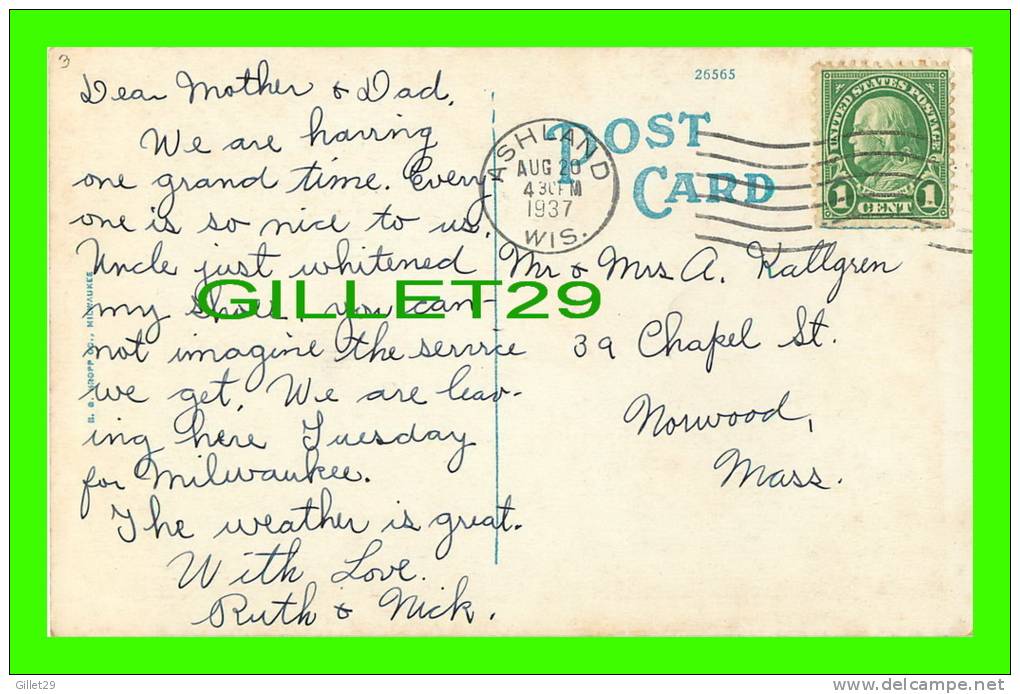 3
Dear Mother & Dad,
We are having
one grand time. Every
one is so nice to us.
Uncle just whitened
my shoes, you can-
not imagine the service
we get. We are leav-
ing here Tuesday
for Milwaukee.
The weather is great.
With Love.
Ruth & Nick.
GILLET29
26565
POST
CARD
ASHLAND
AUG 20
4 30 PM
1937
WIS.
UNITED STATES POSTAGE
1 CENT 1
Mr & Mrs A. Kallgren
39 Chapel St.
Norwood,
Mass.
CO., MILWAUKEE
Gillet29
www.delcampe.net